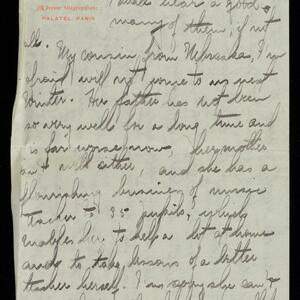 Adresse Télégraphique:
PALATEL, PARIS
hear a good
many of them, if not
all. My cousin from Nebraska, I'm
afraid, will not come to us next
Winter. Her father has not been
so very well for a long time and
is far worse now, her mother
isn't well either, and she has a
flourishing business of music
teacher to 35 pupils, which
enables her to help a lot at home
and to take lessons of a better
teacher herself. I'm sorry she can't